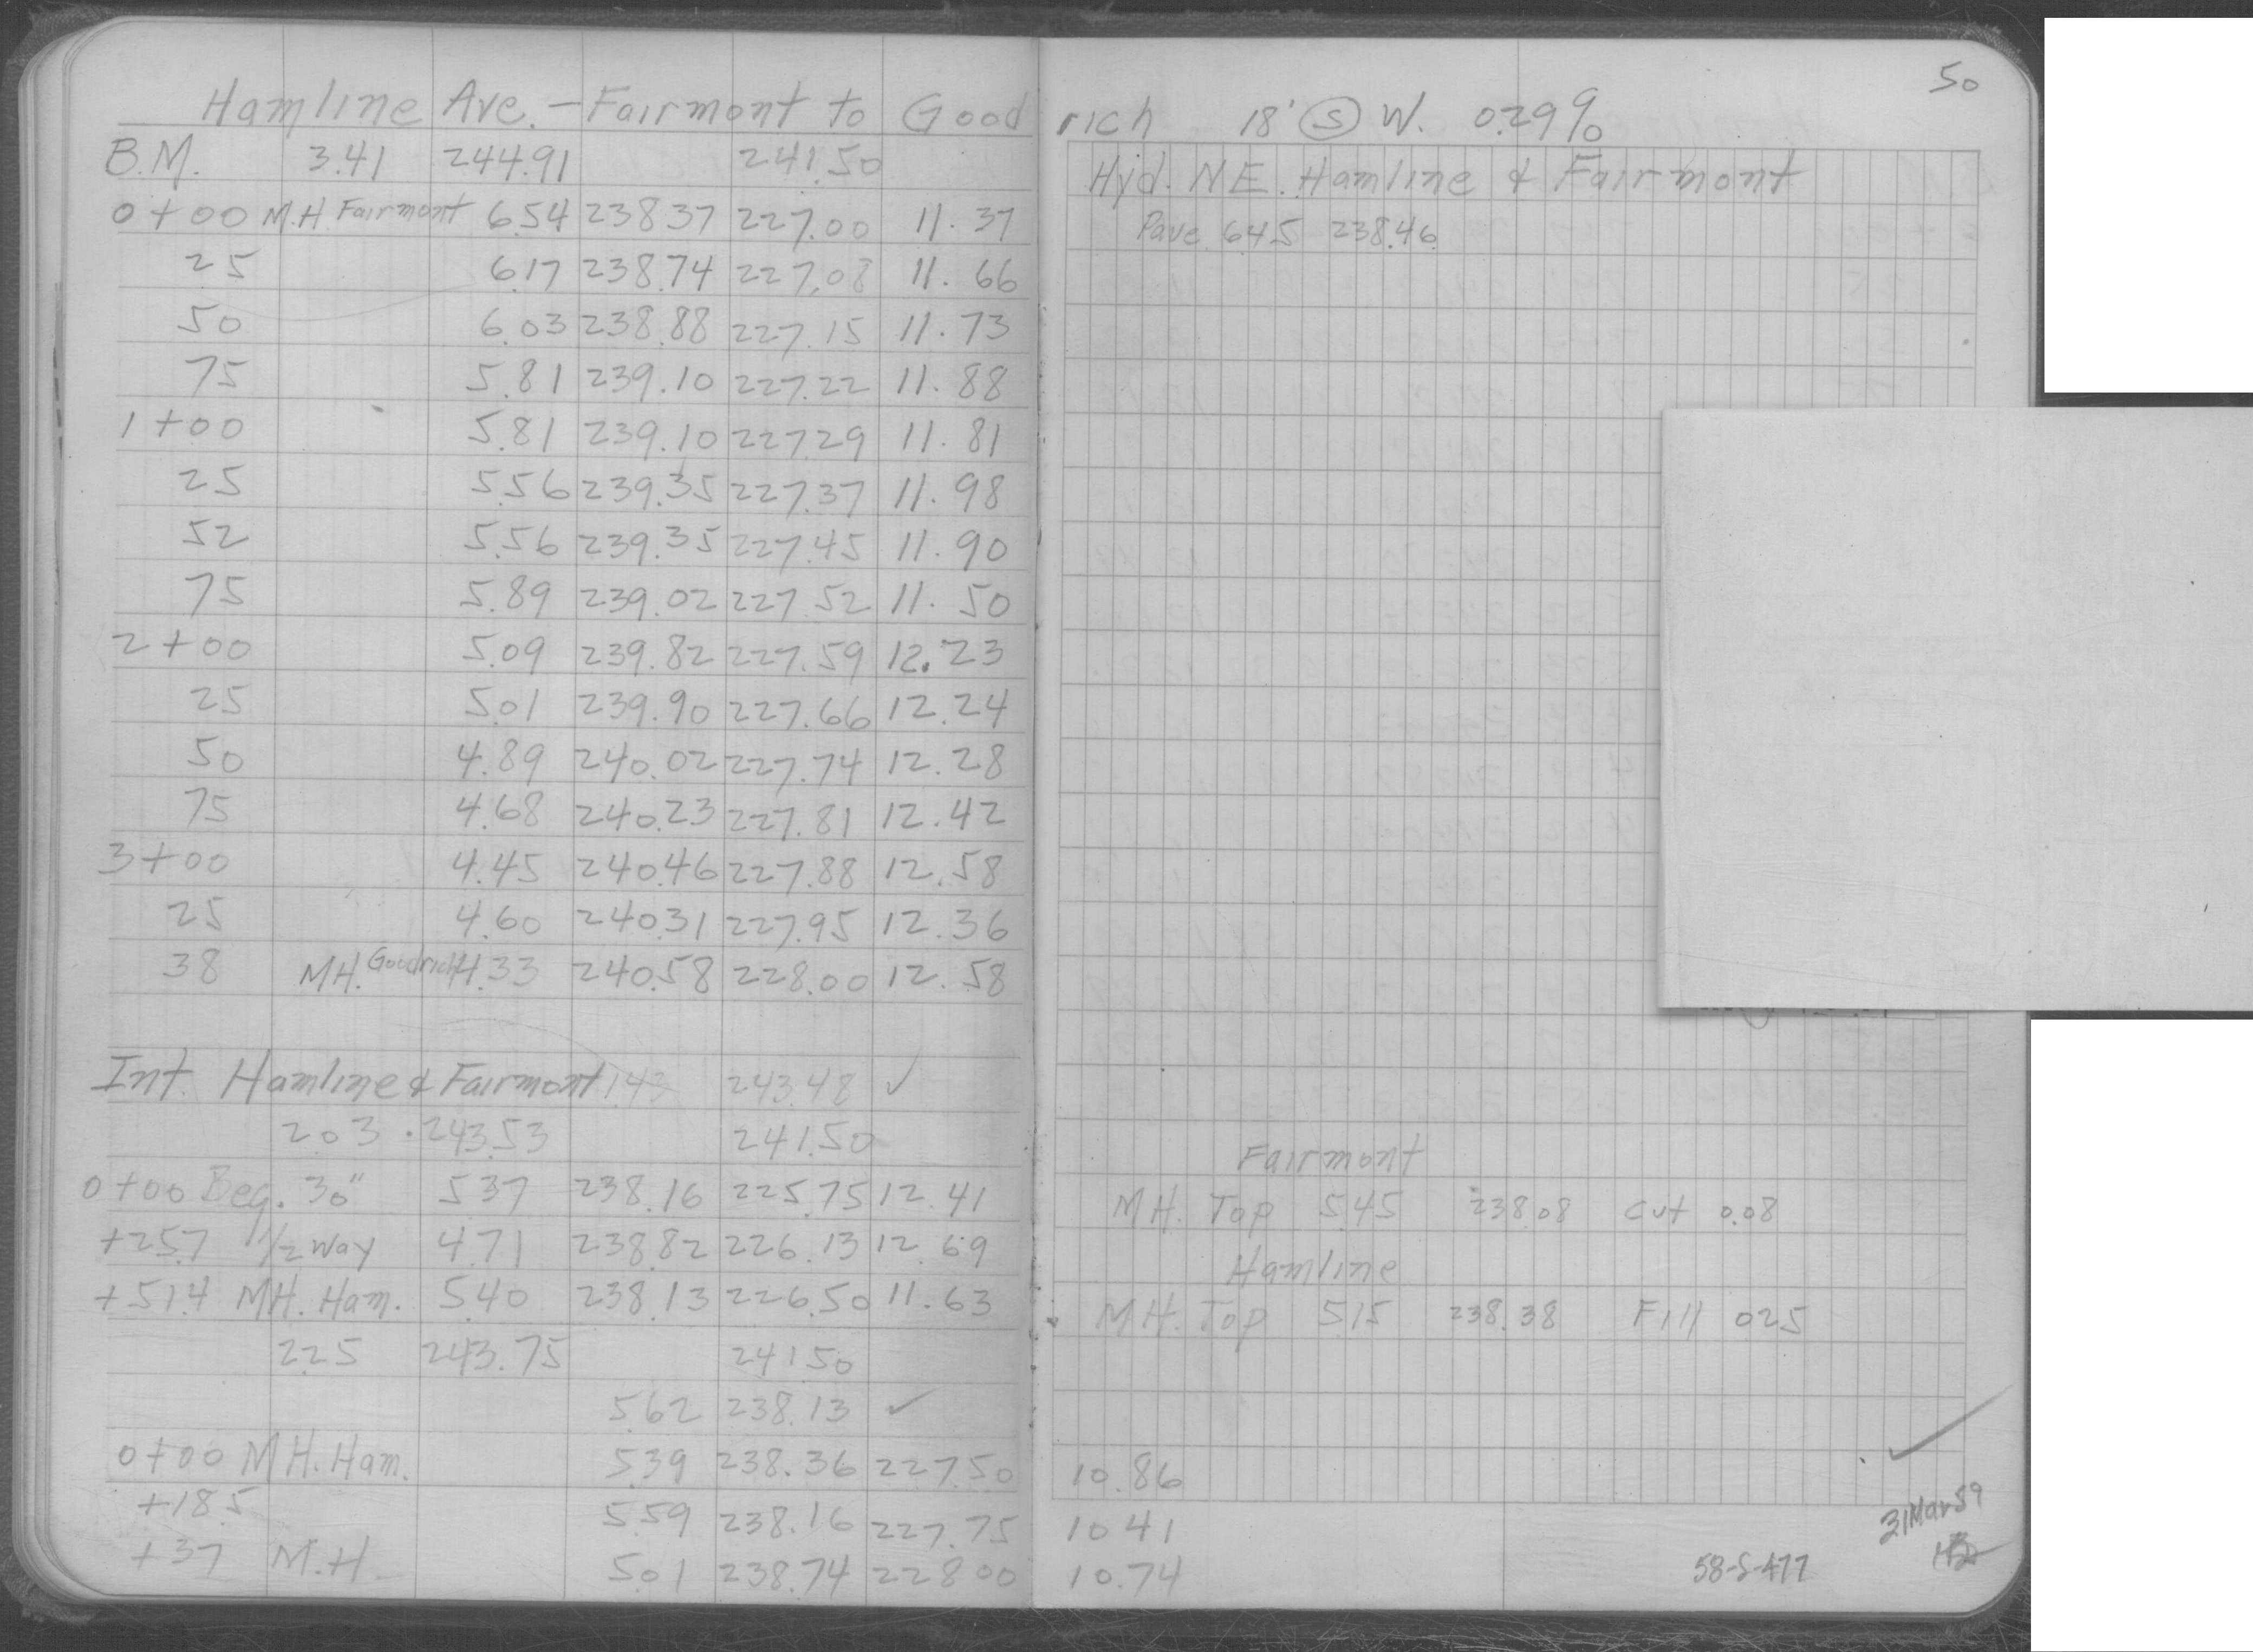 50
Hamline Ave. – Fairmont to Goodrich 18' S W. 0.29%
B.M. 3.41 244.91 241.50 Hyd. N.E. Hamline & Fairmont
0+00 M.H. Fairmont 6.54 238.37 227.00 11.37 Pave. 6.45 238.46
25 6.17 238.74 227.08 11.66
50 6.03 238.88 227.15 11.73
75 5.81 239.10 227.22 11.88
1+00 5.81 239.10 227.29 11.81
25 5.56 239.35 227.37 11.98
52 5.56 239.35 227.45 11.90
75 5.89 239.02 227.52 11.50
2+00 5.09 239.82 227.59 12.23
25 5.01 239.90 227.66 12.24
50 4.89 240.02 227.74 12.28
75 4.68 240.23 227.81 12.42
3+00 4.45 240.46 227.88 12.58
25 4.60 240.31 227.95 12.36
38 MH. Goodrich 4.33 240.58 228.00 12.58
Int. Hamline & Fairmont 1.43 243.48 ✓
2.03 243.53 241.50
Fairmont
0+00 Beg. 30" 5.37 238.16 225.75 12.41 MH. Top 5.45 238.08 cut 0.08
+25.7 1/2 Way 4.71 238.82 226.13 12.69
Hamline
+51.4 MH. Ham. 5.40 238.13 226.50 11.63 MH. Top 5.15 238.38 Fill 0.25
2.25 243.75 241.50
5.62 238.13 ✓
0+00 MH. Ham. 5.39 238.36 227.50 10.86
+18.5 5.59 238.16 227.75 10.41
+37 M.H. 5.01 238.74 228.00 10.74
31 Mar 59
58-S-477